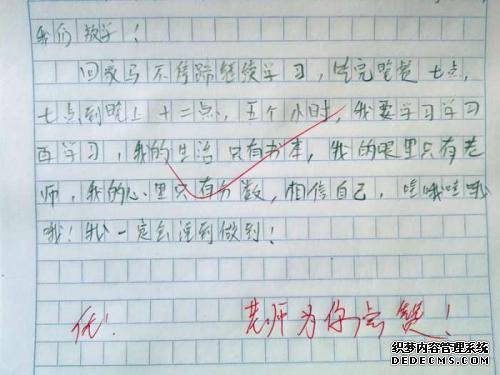 我们放学！
回家马不停蹄继续学习，吃完晚餐七点，
七点到晚上十二点，五个小时，我要学习学习
再学习，我的生活只有书本，我的眼里只有老
师，我的心里只有分数，相信自己，哇哦哇哦
哦！我一定会说到做到！
优！ 老师为你点赞！
织梦内容管理系统
DEDECMS.COM